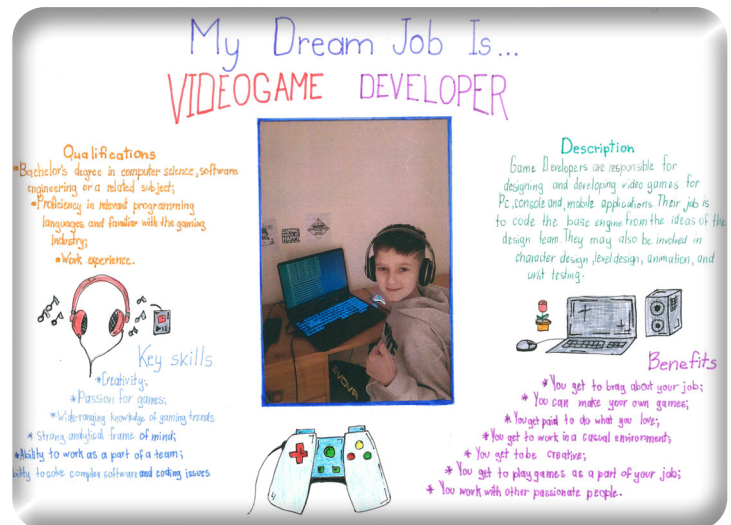 My Dream Job Is...
VIDEOGAME DEVELOPER
Qualifications
*Bachelor's degree in computer science, software
engineering or a related subject;
*Proficiency in relevant programming
languages and familiar with the gaming
industry;
*Work experience.
Key skills
*Creativity;
*Passion for games;
*Wide-ranging knowledge of gaming trends
*Strong analytical frame of mind;
*Ability to work as a part of a team;
bility to solve complex software and coding issues
Description
Game Developers are responsible for
designing and developing video games for
Pc, console and, mobile applications. Their job is
to code the base engine from the ideas of the
design team. They may also be involved in
character design, level design, animation, and
unit testing.
Benefits
*You get to brag about your job;
*You can make your own games;
*You get paid to do what you love;
*You get to work in a casual environment;
*You get to be creative;
*You get to play games as a part of your job;
*You work with other passionate people.